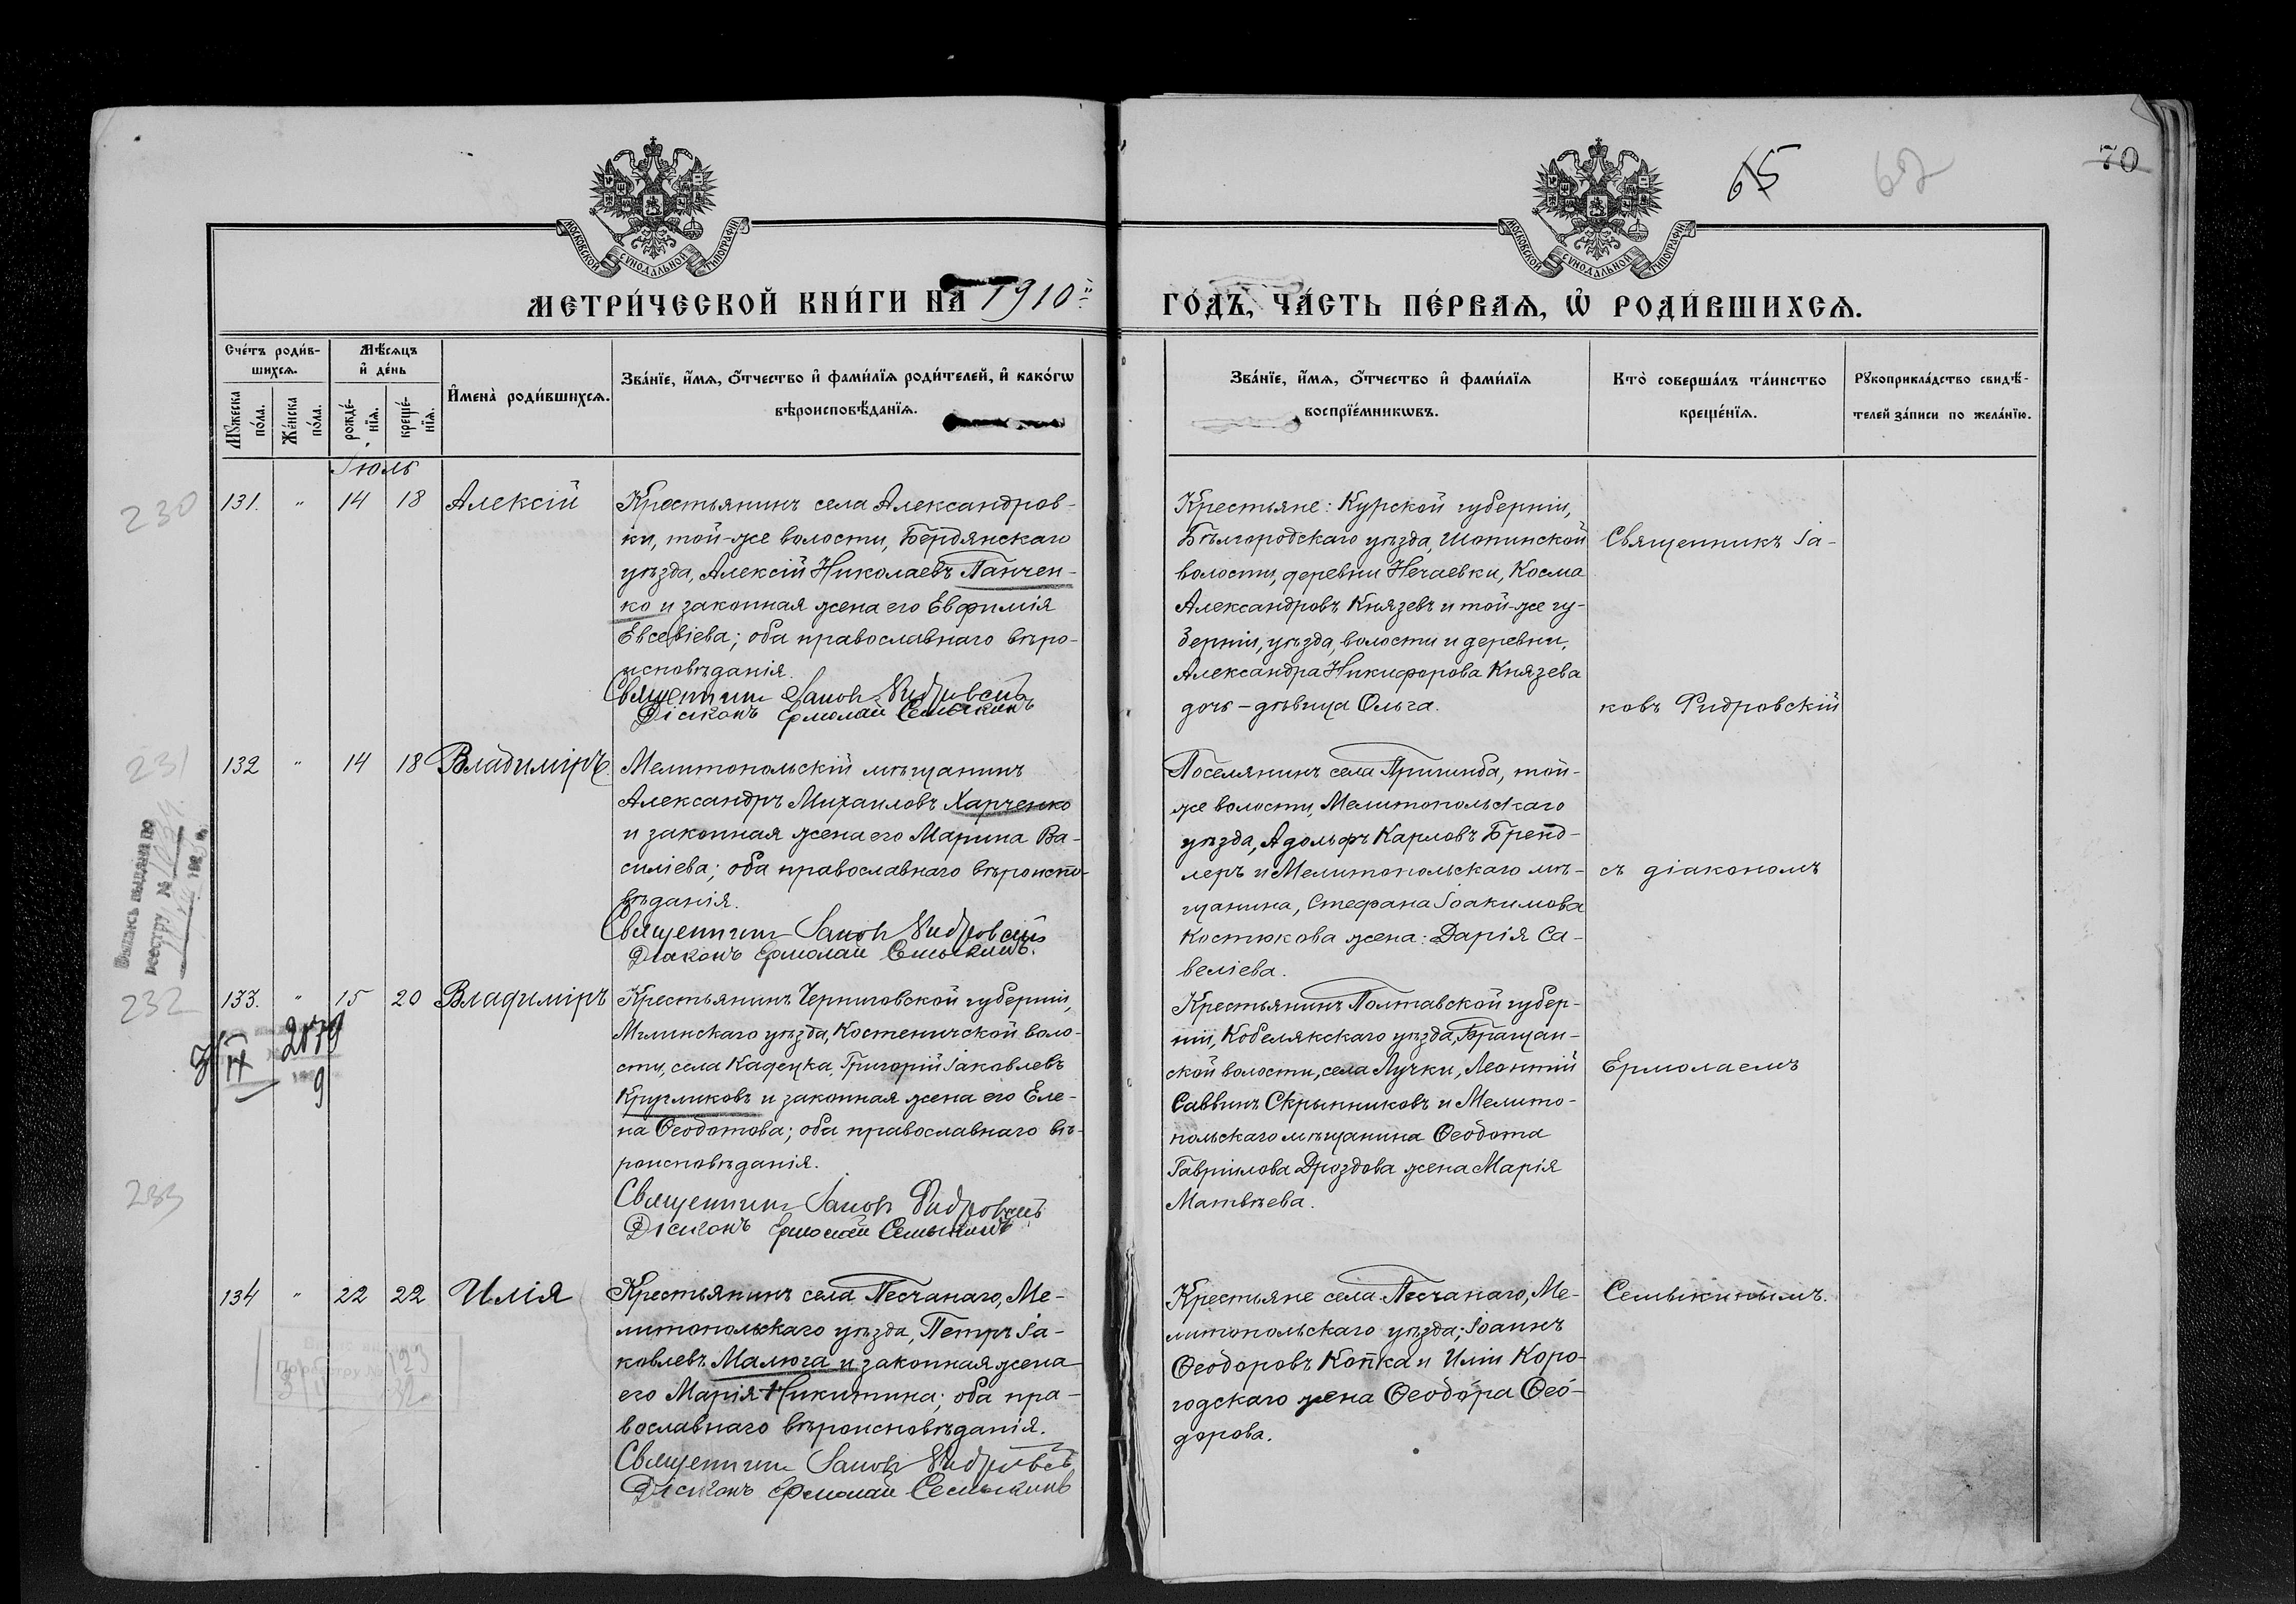 65
70
МОСКОВСКОЙ СѴНОДАЛЬНОЙ ТИПОГРАФІИ
МОСКОВСКОЙ СѴНОДАЛЬНОЙ ТИПОГРАФІИ
МЕТРИ́ЧЕСКОЙ КНИ́ГИ НА 1910й
ГО́ДЪ, ЧА́СТЬ ПЕ́РВАѦ, Ѡ҆ РОДИ́ВШИХСѦ.
Сче́тъ роди́в-
шихсѧ.
Мѣ́сѧцъ
и҆ де́нь
Мꙋ́жеска по́ла.
Же́нска по́ла.
рожде́-
нїѧ.
креще́-
нїѧ.
И҆мена̀ роди́вшихсѧ.
Зва́нїе, и҆́мѧ, ѻ҆́тчество и҆ фами́лїѧ роди́телей, и҆ како́гѡ
вѣроисповѣ́данїѧ.
Зва́нїе, и҆́мѧ, ѻ҆́тчество и҆ фами́лїѧ
воспрїе́мникѡвъ.
Кто̀ соверша́лъ та́инство
креще́нїѧ.
Рꙋкоприкла́дство свидѣ́-
телей за́писи по жела́нїю.
Іюль
230
131. " 14 18 Алексій
Крестьянинъ села Александров-
ки, той-же волости, Бердянскаго
уѣзда, Алексій Николаевъ Панчен-
ко и законная жена его Евфимія
Евсевіева; оба православнаго вѣро-
исповѣданія.
Священникъ Іаковъ Ридровскій
Діаконъ Ермолай Семыкинъ
Крестьяне: Курской губерніи,
Бѣлгородскаго уѣзда, Шопинской
волости, деревни Нечаевки, Косма
Александровъ Князевъ и той-же гу-
берніи, уѣзда, волости и деревни,
Александра Никифорова Князева
дочь – дѣвица Ольга.
Священникъ Іа-
ковъ Ридровскій
231
132 " 14 18 Владиміръ
Мелитопольскій мѣщанинъ
Александръ Михаиловъ Харченко
и законная жена его Марина Ва-
силіева; оба православнаго вѣроиспо-
вѣданія.
Священникъ Іаковъ Ридровскій
Діаконъ Ермолай Семыкинъ.
Поселянинъ села Пришиба, той-
же волости, Мелитопольскаго
уѣзда, Адольфъ Карловъ Бренд-
леръ и Мелитопольскаго мѣ-
щанина, Стефана Іоакимова
Костюкова жена: Дарія Са-
веліева.
съ діакономъ
Выпись выдана по
реестру №
232
133. " 15 20 Владиміръ
Крестьянинъ Черниговской губерніи,
Мглинскаго уѣзда, Костеничской воло-
сти, села Кадецка, Григорій Іаковлевъ
Кругликовъ и законная жена его Еле-
на Ѳеодотова; оба православнаго вѣ-
роисповѣданія.
Священникъ Іаковъ Ридровскій
Діаконъ Ермолай Семыкинъ
Крестьянинъ Полтавской губер-
ніи, Кобелякскаго уѣзда, Бращан-
ской волости, села Лучки, Леонтій
Саввинъ Скрынниковъ и Мелито-
польскаго мѣщанина Ѳеодота
Гавріилова Дроздова жена Марія
Матвѣева.
Ермолаемъ
233
134 " 22 22 Илія
Крестьянинъ села Песчанаго, Ме-
литопольскаго уѣзда, Петръ Іа-
ковлевъ Малюга и законная жена
его Марія Никитина; оба пра-
вославнаго вѣроисповѣданія.
Священникъ Іаковъ Ридровскій
Діаконъ Ермолай Семыкинъ
Крестьяне села Песчанаго, Ме-
литопольскаго уѣзда; Іоаннъ
Ѳеодоровъ Копка и Иліи Коро-
годскаго жена Ѳеодора Ѳео-
дорова.
Семыкинымъ.